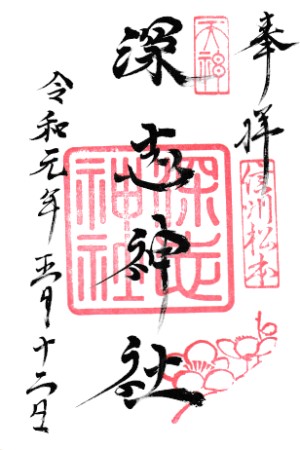 奉拝
信州松本
天神
深志神社
深志神社
令和元年五月十二日